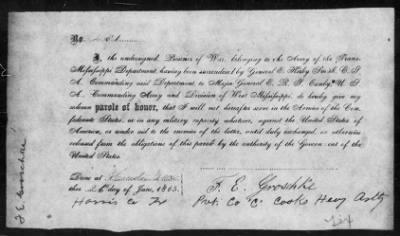 No.
I, the undersigned, Prisoner of War, belonging to the Army of the Trans-
Mississippi Department, having been surrendered by General E. Kirby Smith, C. S.
A., Commanding said Department, to Major General E. R. S. Canby, U. S.
A., Commanding Army and Division of West Mississippi, do hereby give my
solemn parole of honor, that I will not hereafter serve in the Armies of the Con-
federate States, or in any military capacity whatever, against the United States of
America, or render aid to the enemies of the latter, until duly exchanged, or otherwise
released from the obligations of this parole by the authority of the Government of the
United States.
Done at
this 26th day of June, 1865.
F. E. Groschke
Harris Co Tx
Pvt. Co C. Cooks Hevy Artly
F E Groschke